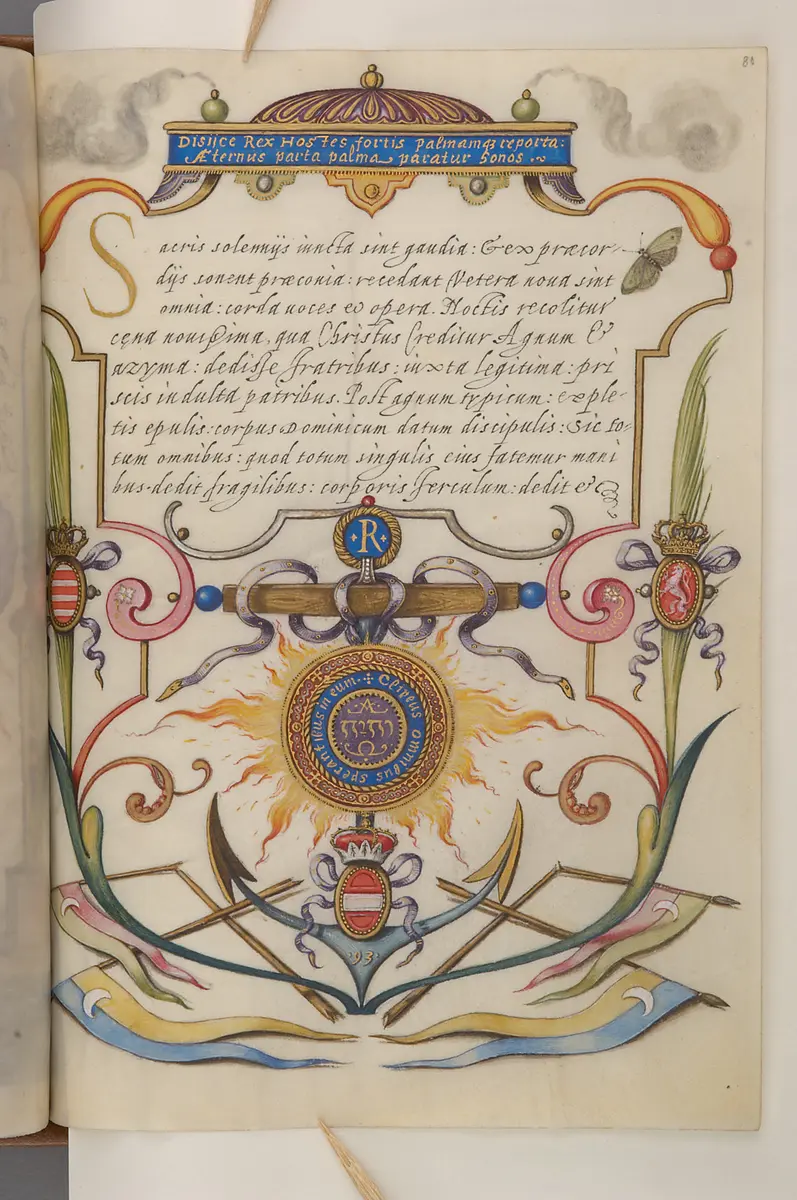 81
Disijce Rex Hostes fortis palmamq; reporta:
Æternus parta palma paratur honos.
Sacris solennijs iuncta sint gaudia: & ex præcor-
dijs sonent præconia: recedant Vetera noua sint
omnia: corda uoces et opera. Noctis recolitur
cęna nouißima, qua Christus Creditur Agnum &
azyma: dedisse fratribus: iuxta legitima: pri
scis indulta patribus. Post agnum typicum: exple-
tis epulis: corpus Dominicum datum discipulis: Sic to-
tum omnibus: quod totum singulis eius fatemur mani
bus. dedit fragilibus: corporis ferculum: dedit &
R
Clipeus omnibus sperantibus in eum.
A
יהוה
Ω
93